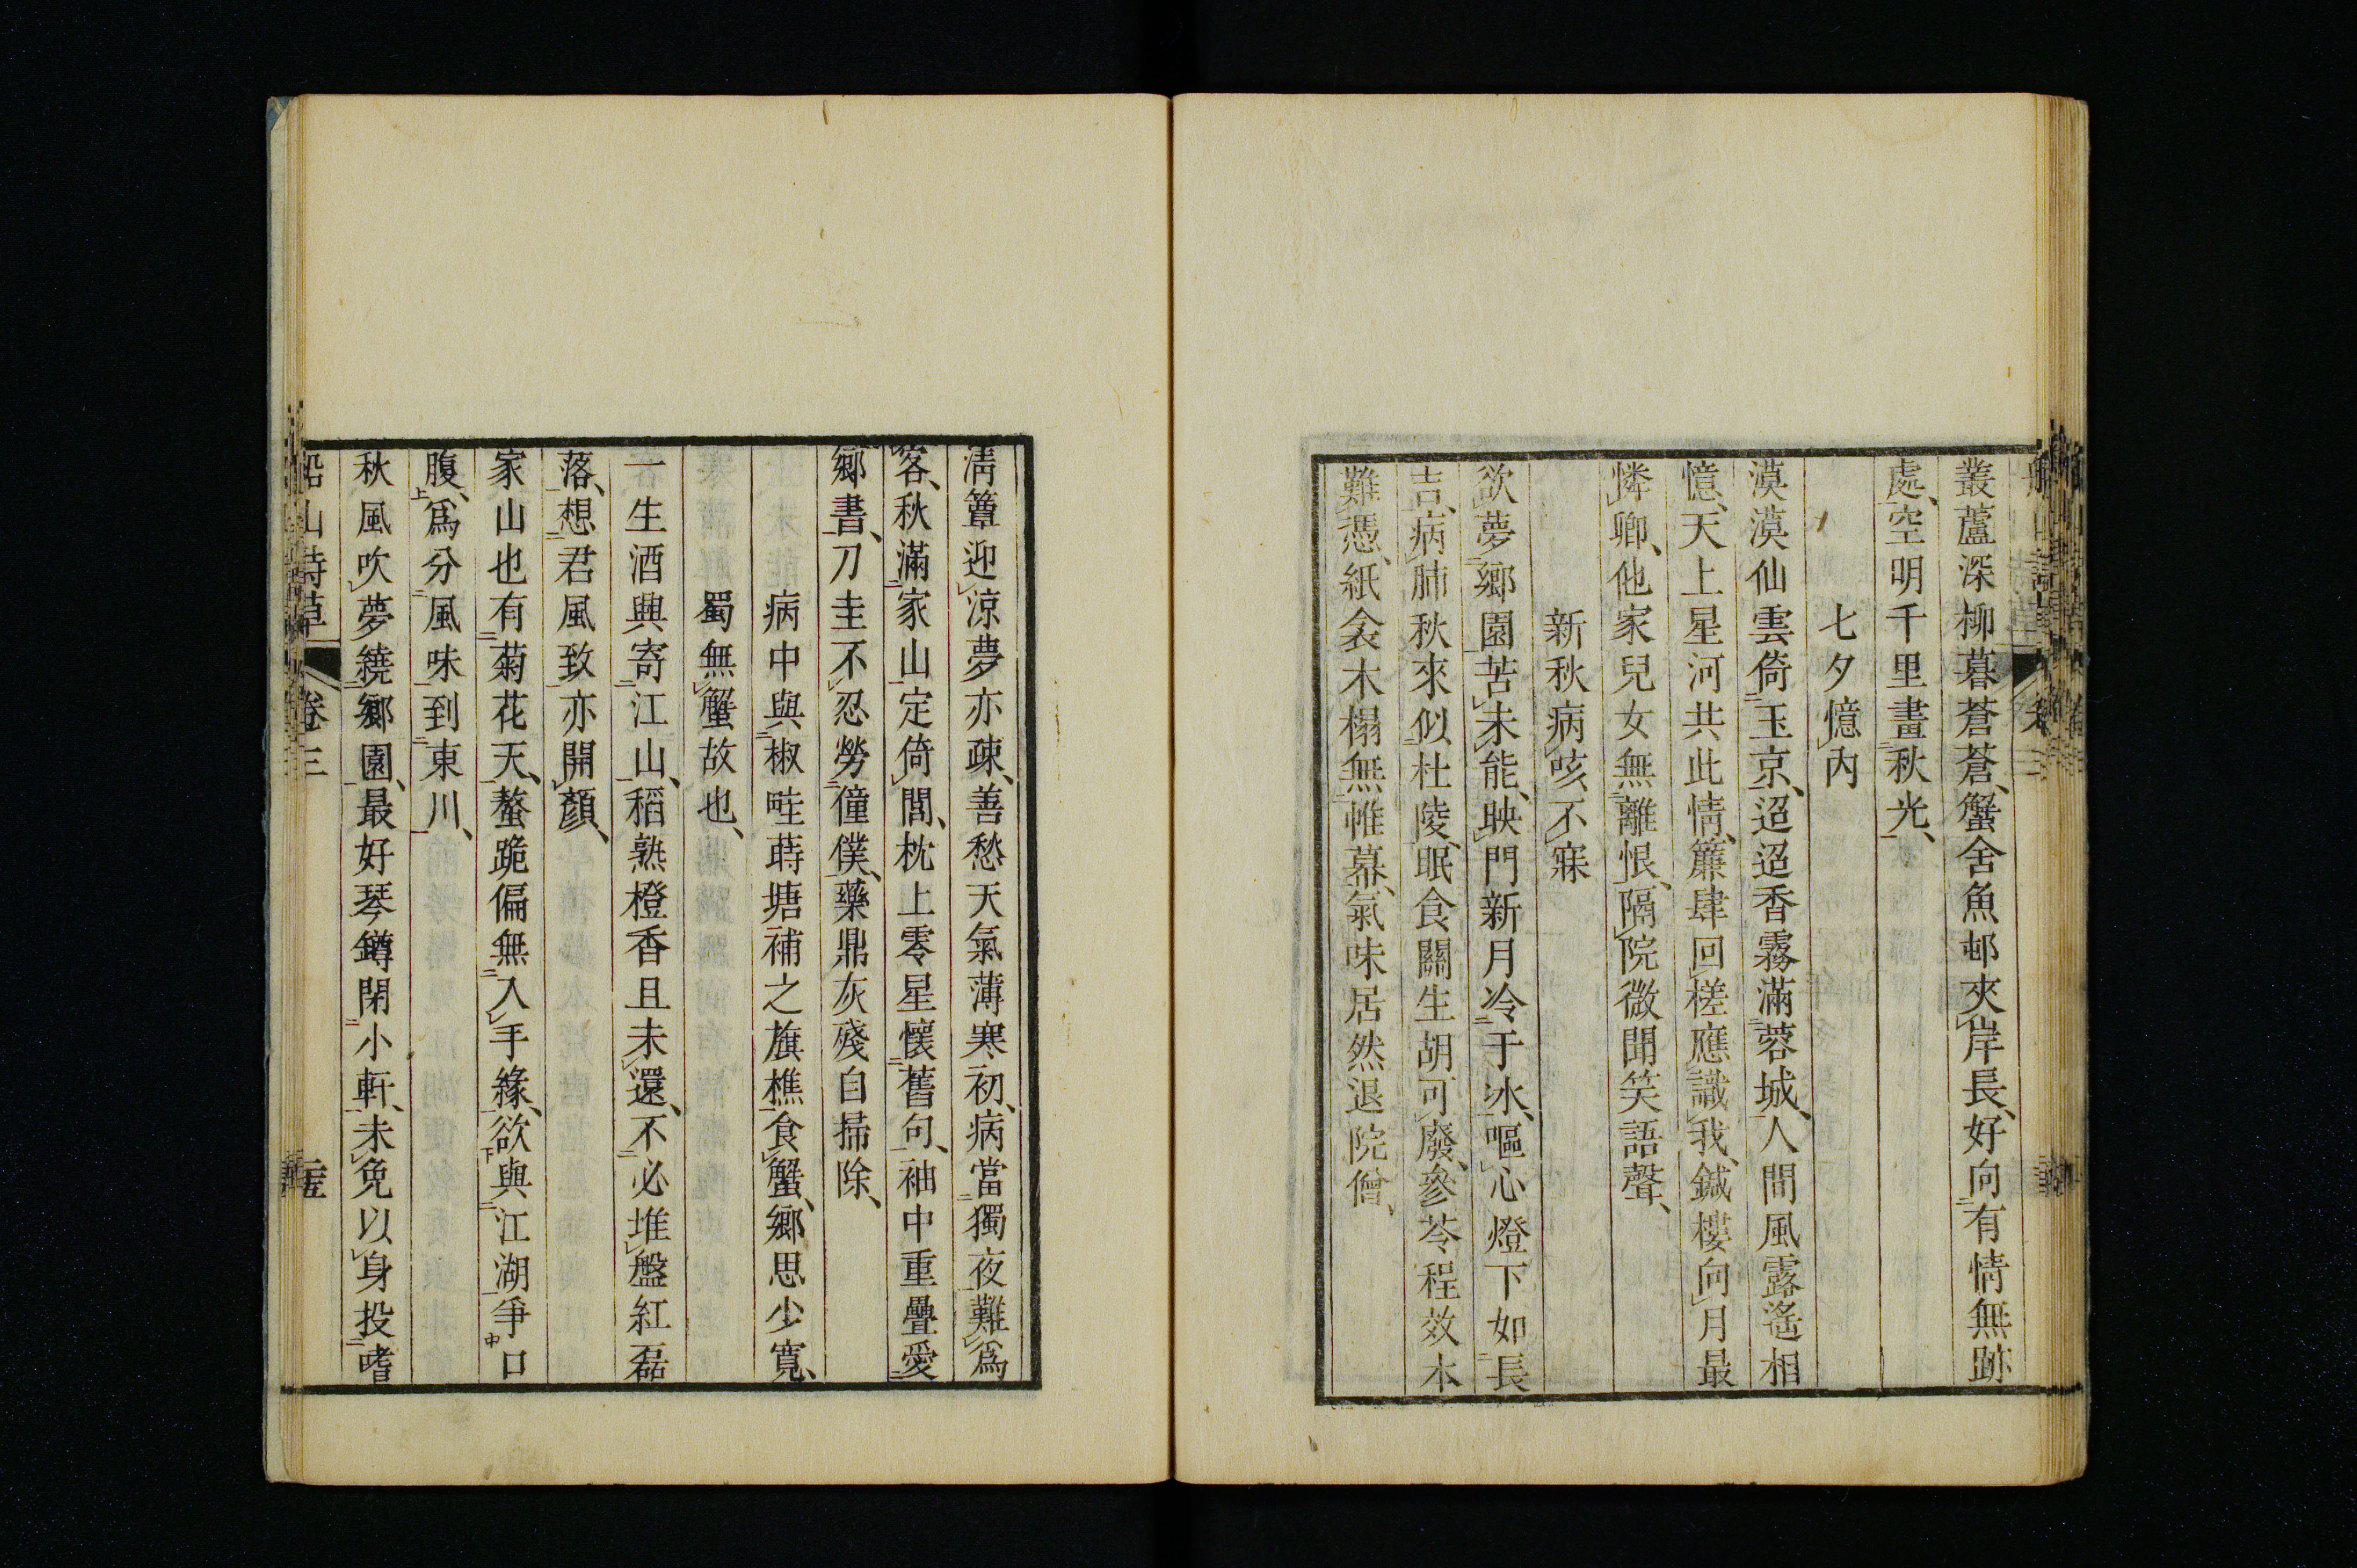 叢蘆深柳暮蒼蒼、蟹舍魚邨夾岸長、好向有情無跡
處、空明千里畫秋光、
七夕憶內
漠漠仙雲倚玉京、迢迢香霧滿蓉城、人間風露遙相
憶、天上星河共此情、簾肆回槎應識我、鍼樓向月最
憐卿、他家兒女無離恨、隔院微聞笑語聲、
新秋病咳不寐
欲夢鄉園苦未能、映門新月冷于冰、嘔心燈下如長
吉、病肺秋來似杜陵、眠食關生胡可廢、參苓程效本
難憑、紙衾木榻無帷幕、氣味居然退院僧、
清簟迎涼夢亦疎、善愁天氣薄寒初、病當獨夜難爲
客、秋滿家山定倚閭、枕上零星懷舊句、袖中重疊愛
鄉書、刀圭不忍勞僮僕、藥鼎灰殘自掃除、
病中與椒畦蒔塘補之旗樵食蟹、鄉思少寬、
蜀無蟹故也、
一生酒興寄江山、稻熟橙香且未還、不必堆盤紅磊
落、想君風致亦開顏、
家山也有菊花天、螯跪偏無入手緣、欲與江湖爭口
腹、爲分風味到東川、
秋風吹夢繞鄉園、最好琴罇閑小軒、未免以身投嗜
船山詩草 卷三